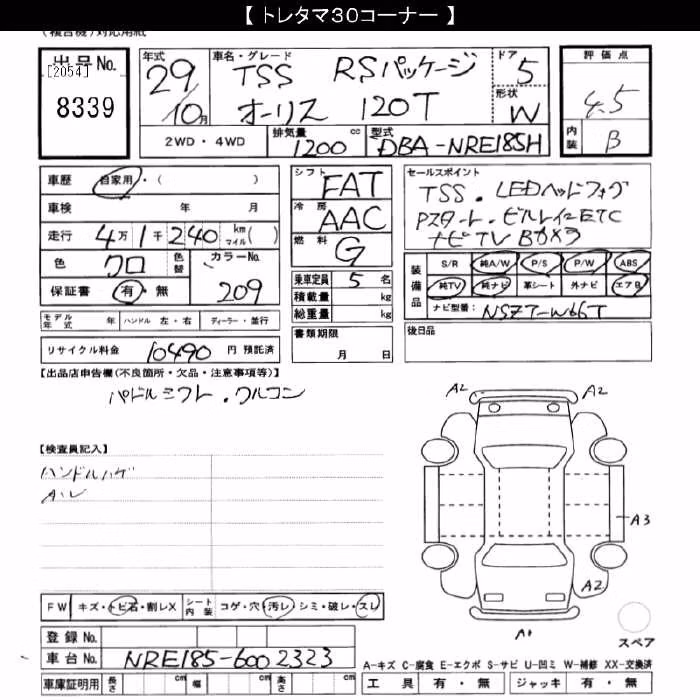 【 トレタマ30コーナー 】
(複合機)対応用紙
出品No. [2054] 8339
年式 29/10月
車名・グレード TSS RSパッケージ
オーリス 120T
ドア 5
形状 W
評価点 4.5
内装 B
2WD・4WD 排気量 1200 cc 型式 DBA-NRE185H
車歴 自家用・( )
車検 年 月
走行 4万1千240 km マイル( )
色 クロ 色替 カラーNo. 209
保証書 有・無
モデル年式 年 ハンドル 左・右 ディーラー・並行
リサイクル料金 10490 円 預託済
シフト FAT
冷房 AAC
燃料 G
乗車定員 5 名
積載量 kg
総重量 kg
書類期限
月 日
セールスポイント
TSS . LEDヘッドフォグ
Pスタート. ビルトインETC
ナビTV Bカメラ
装備品 S/R 純A/W P/S P/W ABS
純TV 純ナビ 革シート 外ナビ エアB
ナビ型番: NSZT-W66T
後日品
【出品店申告欄(不良箇所・欠品・注意事項等)】
パドルシフト . クルコン
【検査員記入】
ハンドルハゲ
A.レ
FW キズ・トビ石・割レX シート内装 コゲ・穴・汚レ・シミ・破レ・スレ
登録No.
車台No. NRE185-6002323
車庫証明用 長さ cm 幅 cm 高さ cm
A2 A2
A3
A2
A1
スペア
A-キズ C-腐食 E-エクボ S-サビ U-凹ミ W-補修 XX-交換済
工具 有・無 ジャッキ 有・無